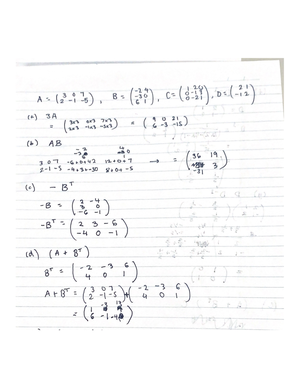 A = (3 0 7
2 -1 -5), B = (-2 4
-3 0
6 1), C = (1 2 0
0 -1 3
0 -2 1), D = (2 1
-1 2)
(a) 3A
= (3x3 0x3 7x3
2x3 -1x3 -5x3) = (9 0 21
6 -3 -15)
(b) AB
3 0 7 -6+0+42 12+0+7 → = (36 19
2 -1 -5 -4+3+-30 8+0+-5 -31 3)
(c) - Bᵀ
-B = (2 -4
3 0
-6 -1)
-Bᵀ = (2 3 -6
-4 0 -1)
(d) (A + Bᵀ)
Bᵀ = (-2 -3 6
4 0 1)
A + Bᵀ = (3 0 7
2 -1 -5) + (-2 -3 6
4 0 1)
= (1 -3 13
6 -1 -4)